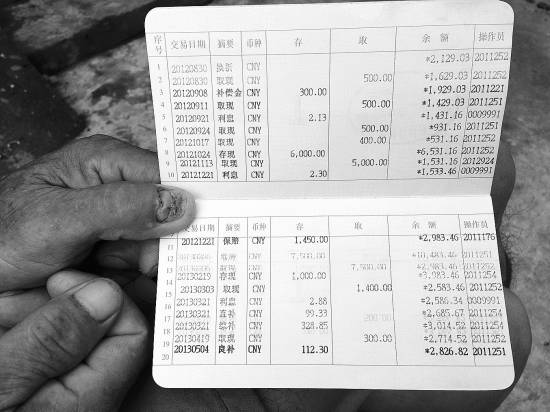 序号 交易日期 摘要 币种 存 取 余额 操作员
1 20120830 换折 CNY *2,129.03 2011252
2 20120830 取现 CNY 500.00 *1,629.03 2011252
3 20120908 补偿金 CNY 300.00 *1,929.03 2011221
4 20120911 取现 CNY 500.00 *1,429.03 2011251
5 20120921 利息 CNY 2.13 *1,431.16 0009991
6 20120924 取现 CNY 500.00 *931.16 2011251
7 20121017 取现 CNY 400.00 *531.16 2011252
8 20121024 存现 CNY 6,000.00 *6,531.16 2011252
9 20121113 取现 CNY 5,000.00 *1,531.16 2012924
10 20121221 利息 CNY 2.30 *1,533.46 0009991
交易日期 摘要 币种 存 取 余额 操作员
11 20121221 保赔 CNY 1,450.00 *2,983.46 2011176
12 CNY 7,500.00 *10,483.46 2011251
13 取现 CNY 7,500.00 *2,983.46 2011252
14 20130219 存现 CNY 1,000.00 *3,983.46 2011254
15 20130303 取现 CNY 1,400.00 *2,583.46 2011252
16 20130321 利息 CNY 2.88 *2,586.34 0009991
17 20130321 直补 CNY 99.33 *2,685.67 2011254
18 20130321 综补 CNY 328.85 *3,014.52 2011254
19 20130419 取现 CNY 300.00 *2,714.52 2011252
20 20130504 良补 CNY 112.30 *2,826.82 2011251